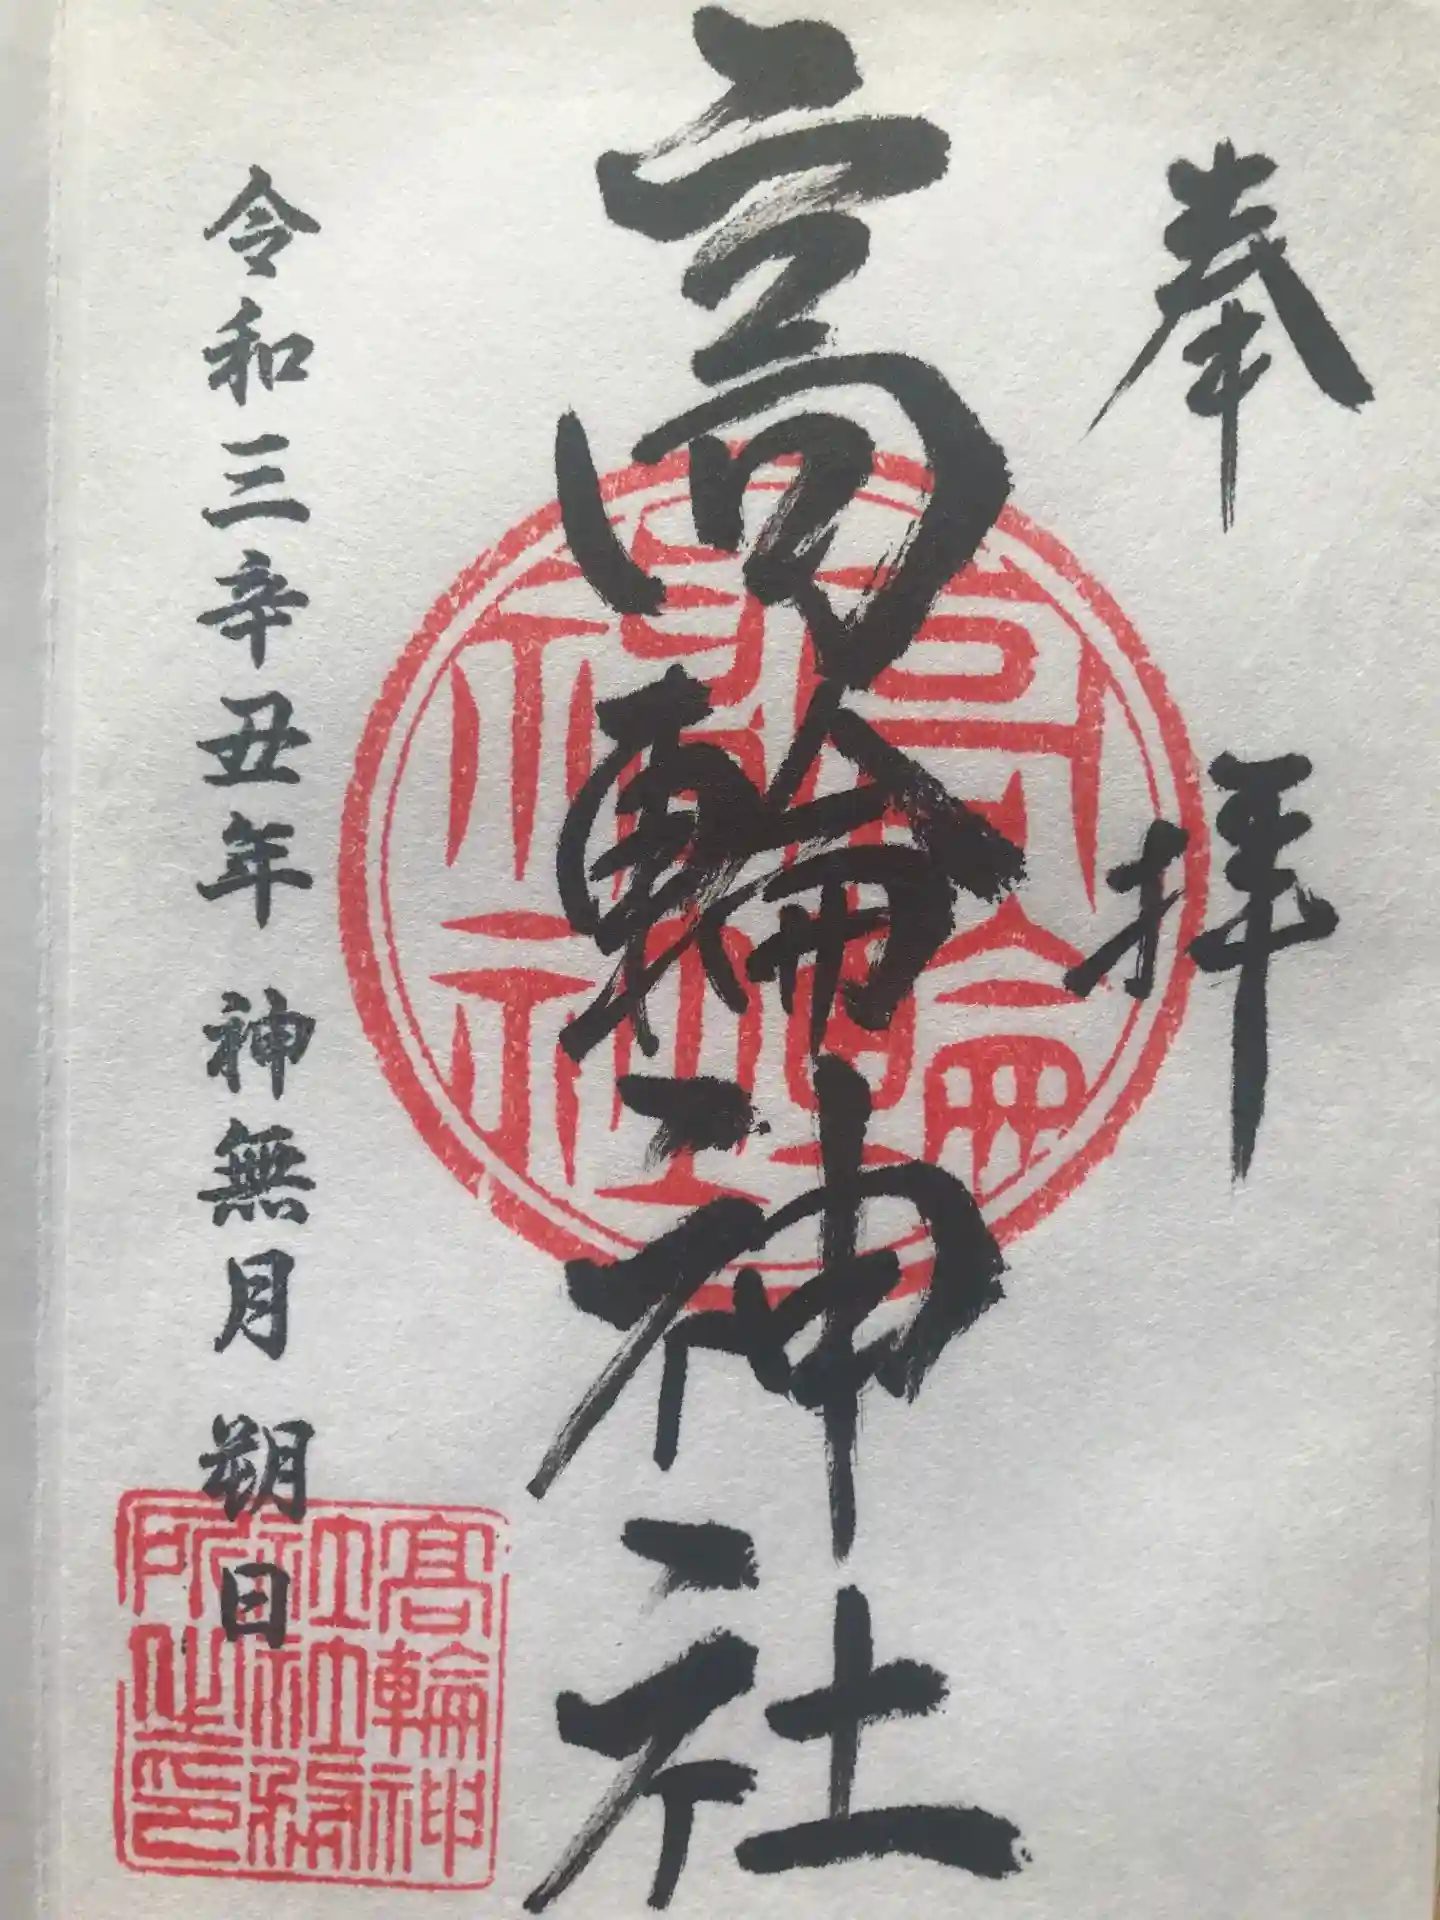 奉拝
高輪神社
令和三辛丑年 神無月 朔日
高輪神社
高輪神社社務所之印